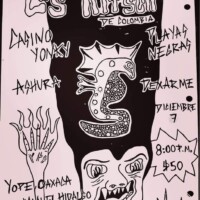 DE COLOMBIA
CASINO PLAYAS
YONKI NEGRAS
ASHURA DEXARME
DICIEMBRE
7
8:00 P.M.
$50
YOPE OAXACA
HIDALGO